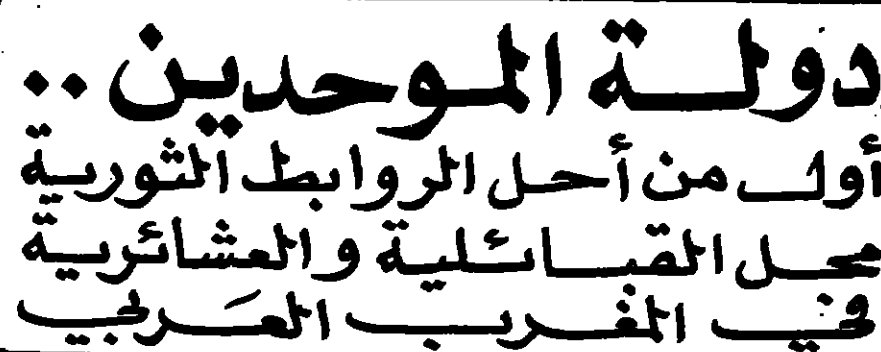 دولة الموحدين ..
أول من أحل الروابط الثورية
محل القبائلية والعشائرية
في المغرب العَربي